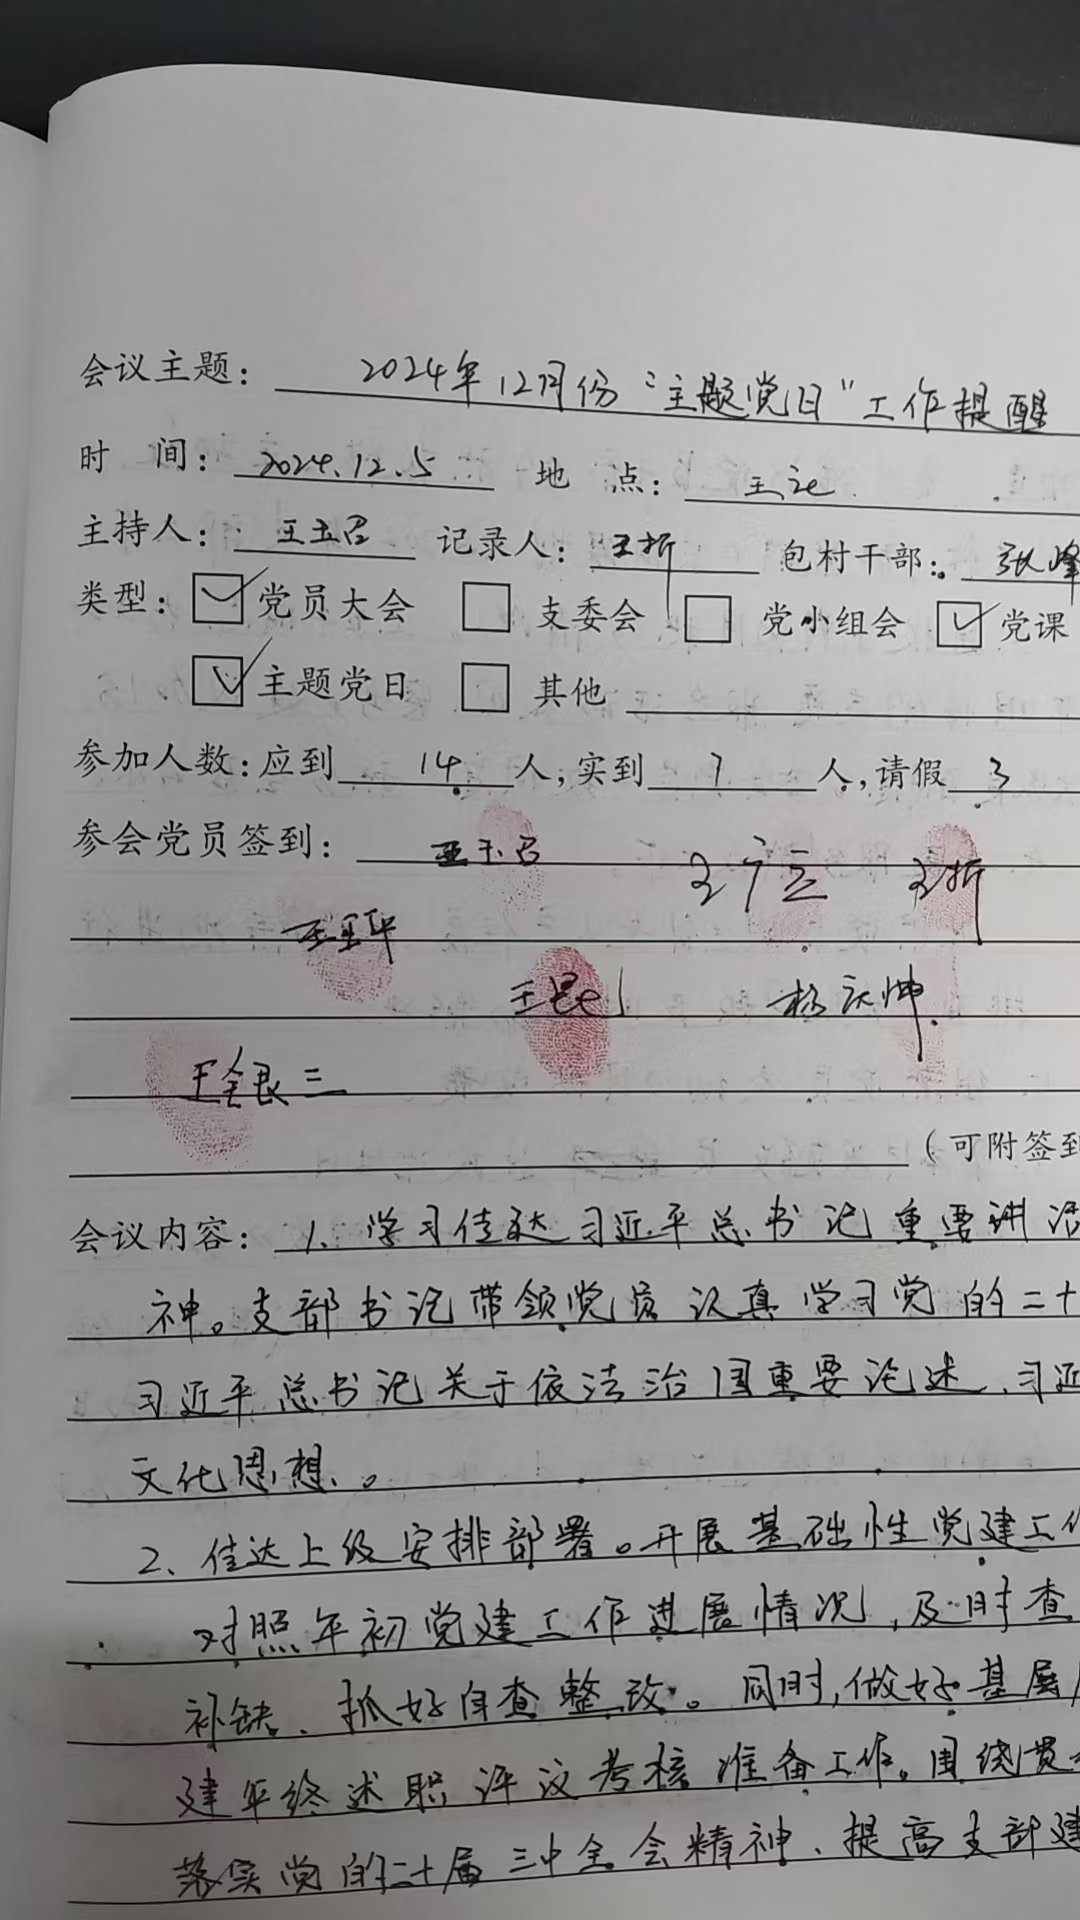 会议主题: 2024年12月份"主题党日"工作提醒
时 间: 2024.12.5 地 点: 王
主持人: 王玉召 记录人: 王折 包村干部: 张峰
类型: 党员大会 支委会 党小组会 党课
主题党日 其他
参加人数: 应到 14 人, 实到 7 人, 请假 3
参会党员签到: 王玉召 王折
王
王 杨庆坤
王全良三
(可附签到
会议内容: 1、学习传达习近平总书记重要讲话
神。支部书记带领党员认真学习党的二十
习近平总书记关于依法治国重要论述、习近
文化思想。
2、传达上级安排部署。开展基础性党建工作
对照年初党建工作进展情况,及时查
补缺、抓好自查整改。同时,做好基层
建年终述职评议考核准备工作。围绕贯
落实党的二十届三中全会精神、提高支部建